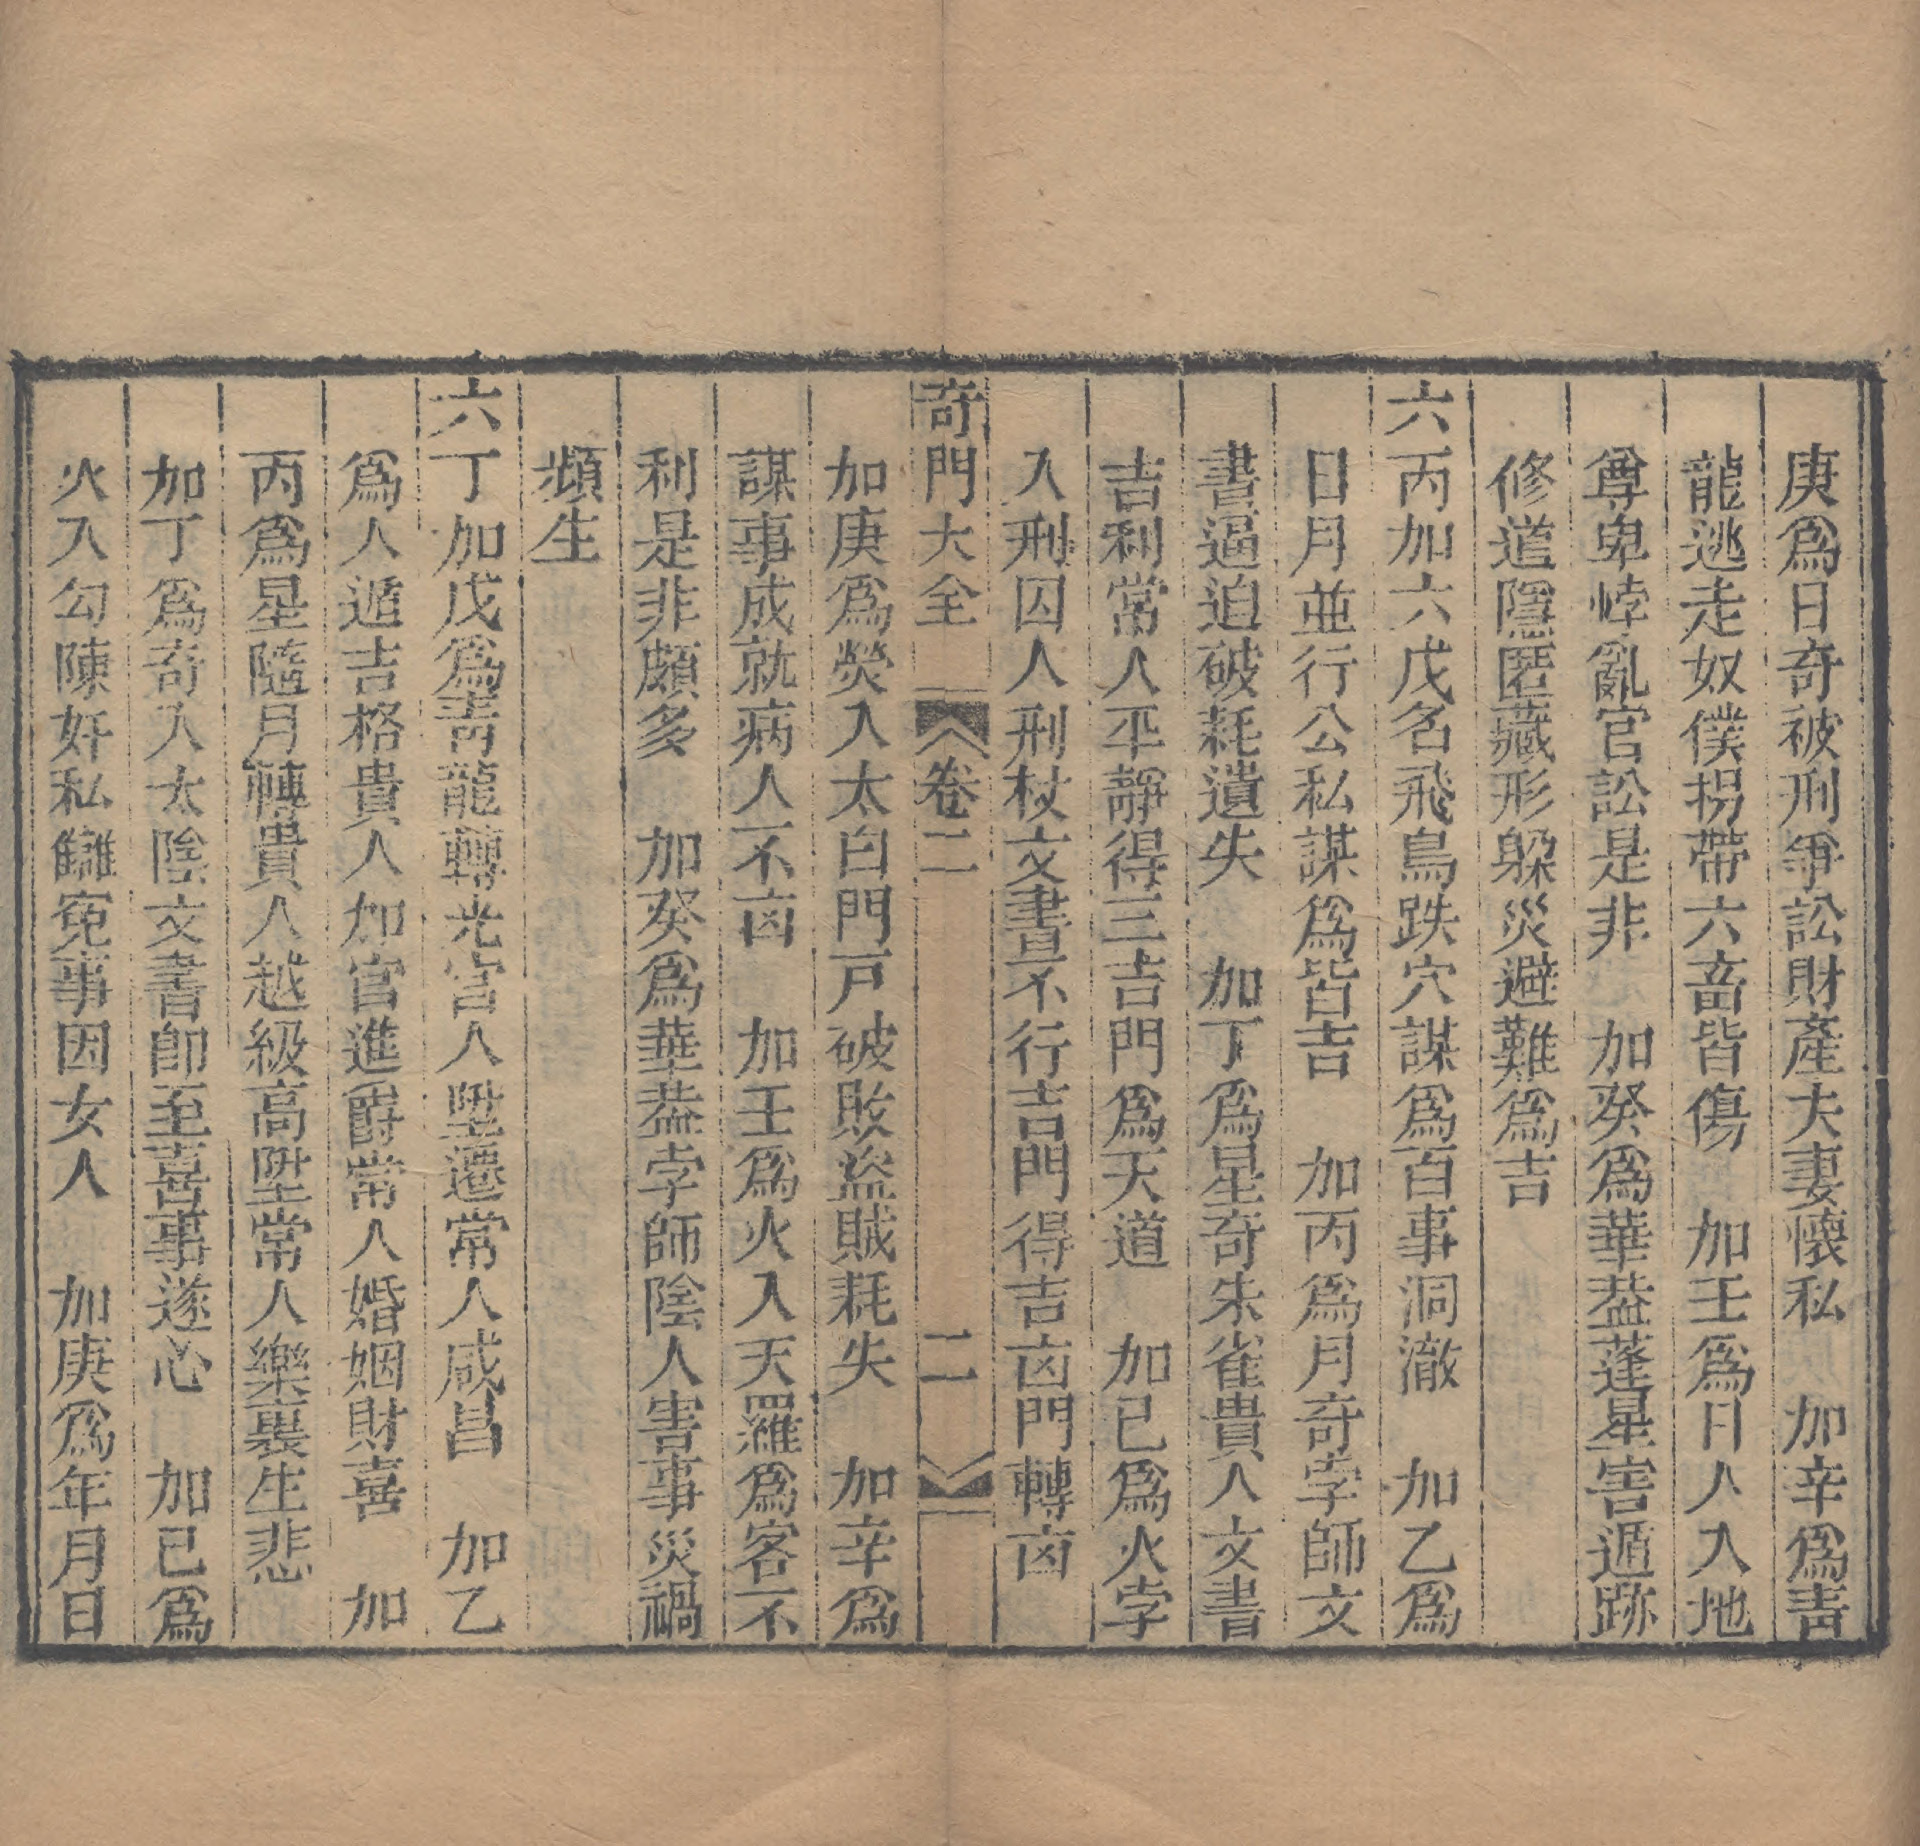 庚爲日奇被刑爭訟財產夫妻懷私　加辛爲靑
龍逃走奴僕拐帶六畜皆傷　加壬爲日人入地
尊卑悖亂官訟是非　加癸爲華葢蓬星害遁跡
修道隱匿藏形躱災避難爲吉
六丙加六戊名飛鳥跌穴謀爲百事洞澈　加乙爲
日月並行公私謀爲皆吉　加丙爲月奇孛師文
書逼迫破耗遺失　加丁爲星奇朱雀貴人文書
吉利常人平靜得三吉門爲天道　加已爲火孛
入刑囚人刑杖文書不行吉門得吉㐫門轉㐫
奇門大全　卷二　二
加庚爲熒入太白門戸破敗盜賊耗失　加辛爲
謀事成就病人不㐫　加壬爲火入天羅爲客不
利是非頗多　加癸爲華葢孛師陰人害事災禍
頻生
六丁加戊爲靑龍轉光官人陞遷常人咸昌　加乙
爲人遁吉格貴人加官進爵常人婚姻財喜　加
丙爲星隨月轉貴人越級高陞常人樂裏生悲
加丁爲奇入太陰文書卽至喜事遂心　加已爲
火入勾陳奸私讎寃事因女人　加庚爲年月日